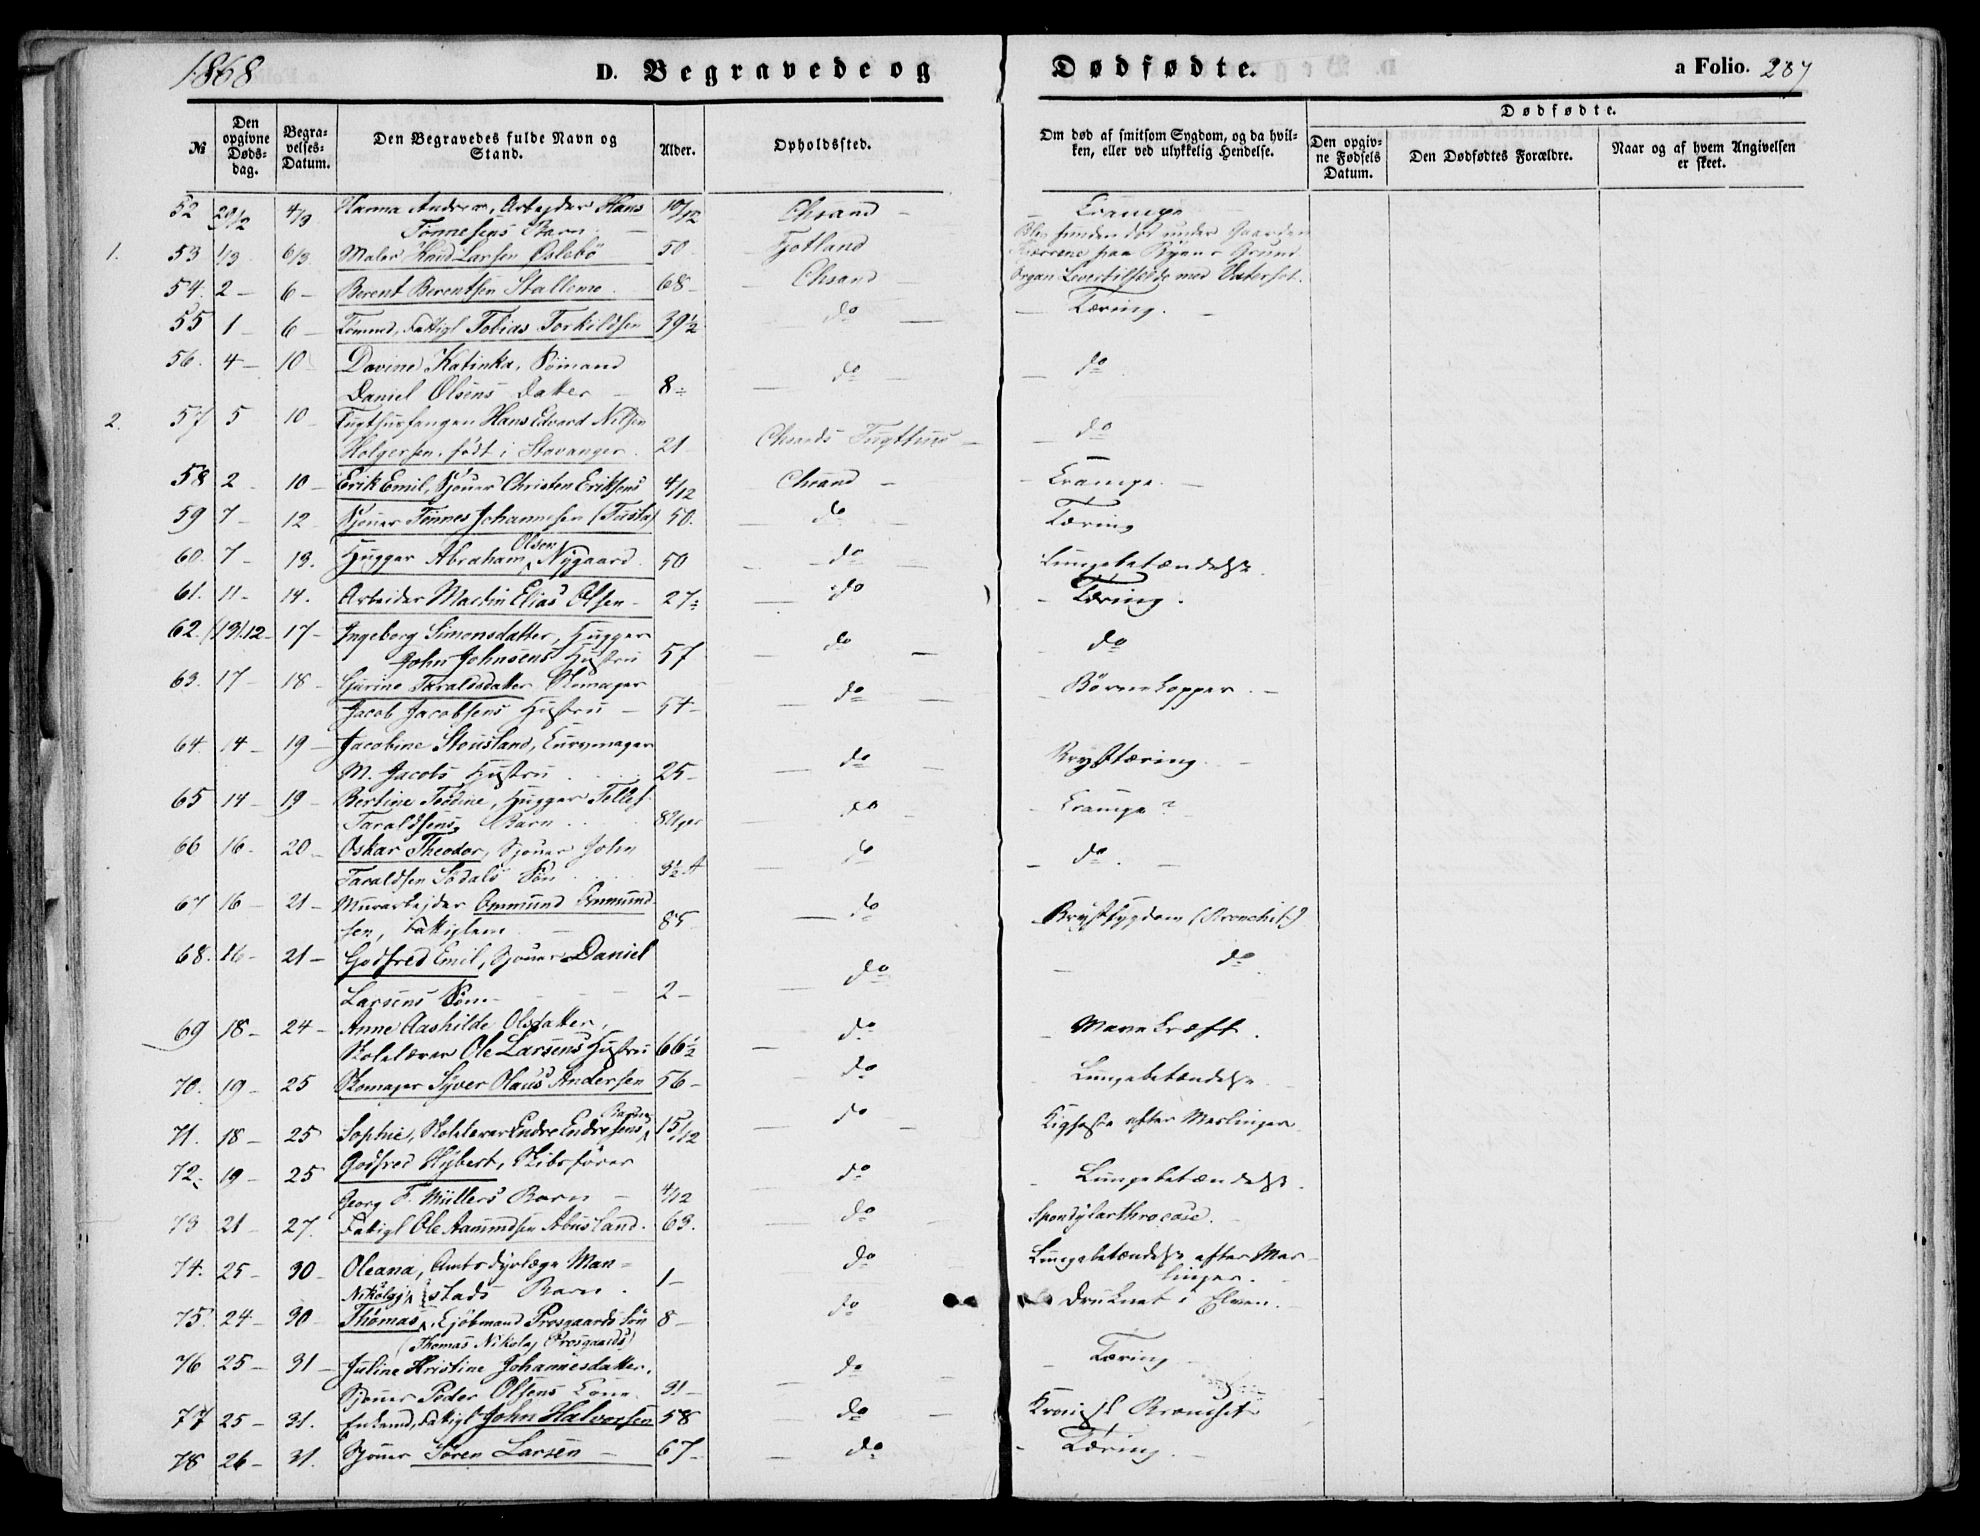 1868
D. Begravede og Dødfødte. a Folio. 287
№ Den opgivne Døds-dag. Begra-velses-Datum. Den Begravedes fulde Navn og Stand. Alder. Opholdssted. Om død af smitsom Sygdom, og da hvil-ken, eller ved ulykkelig Hendelse. Dødfødte. Den opgiv-ne Fødsels Datum. Den Dødfødtes Forældre. Naar og af hvem Angivelsen er skeet.
52 29/2 4/3 Hanna Andrea, Arbejder Hans 10/12 Chsand – Krampe
Tønnesens Barn. –
1. 53 1/3 6/3 Maler Knud Larsen Oslebø 50 – Fjotland Blev funden død under Gaarden
54. 2 – 6 – Berent Berentsen Stallemo 68 – Chsand Organ. Leverlidelse med Vatersot.
55 1 – 6 – Tømmd, Fattigl Tobias Torkildsen 39½ do – Tæring.
56. 4 – 10 Davine Katinka, Sømand
Daniel Olsens Datter – 8 – do – do
2. 57 5 10 – Tugthusfangen Hans Edvard Nilsen
Holgersen, født i Stavanger. 21 – Chsands Tugthus – do
58 2 – 10 – Erik Emil, Sjouer Christen Eriksens 4/12 Chsand – Krampe. –
59 7 – 12 Sjouer Tønnes Johannesen (Tusta) 50. – do – Tæring
60. 7 – 13. Hugger Abraham Olsen Nygaard 50 – do – Lungebetændelse.
61. 11 – 14. Arbeider Martin Elias Olsen – 27 – do – Tæring.
62. (13) 12 – 17 – Ingeborg Simonsdatter, Hugger
John Johnsens Hustru 57 – do – do
63. 17 – 18 – Gurine Taraldsdatter Skomager
Jacob Jacobsens Hustru – 54 – do – Børnekopper. –
64. 14 – 19 – Jacobine Stousland, Kurvmager
M. Jacobs Hustru 25 – do – Brysttæring. –
65 14 – 19 – Bertine Teodine, Hugger Tellef
Taraldsens Barn 8 Uger – do – Krampe?
66 16 – 20 – Oskar Theodor, Sjouer John
Taraldsen Sødals Søn 3½ A do – do. –
67 16 – 21 – Murarbejder Ommund Ommund-
sen, Fattiglem – 85 – do Brystsygdom (Bronchit)
68. 16 – 21 – Godfred Emil, Sjouer Daniel
Larsens Søn – 2 – do – do
69 18 – 24 – Anne Aashilde Olsdatter,
Skolelærer Ole Larsens Hustru 66½ – do – Mavekræft.
70. 19 – 25 Skomager Syver Olaus Andersen 56 – – do Lungebetændelse
71. 18 – 25 Sophie, Skolelærer Endre Endresens Barn 15/12 – do – Kighoste efter Meslinger.
72. 19 – 25 Godfred Hybert, Skibsfører
Georg F. Müllers Barn – 4/12 do – Lungebetændelse.
73 21 – 27. Fattigl Ole Aanundsen Abusland. 63. – do – Spondylarthrocace. –
74. 25 – 30 – Oleana, Amtsdyrlæge Man-
stads Barn. 1 – do Lungebetændelse efter Mes-
linger.
75. 24 – 30 – Thomas Nikolaj, Kjøbmand Prosgaards Søn 8 – do Druknet i Elven. –
(Thomas Nikolaj Prosgaards)
76 25 – 31 – Juline Kristine Johannesdatter,
Sjouer Peder Olsens Kone 31 – do – Tæring –
77 25 – 31. Enkemd, Fattigl John Halvorsen 58 do – Kronisk Bronchit
78 26 – 31. Sjouer Søren Larsen – 67 – – do – Tæring. –